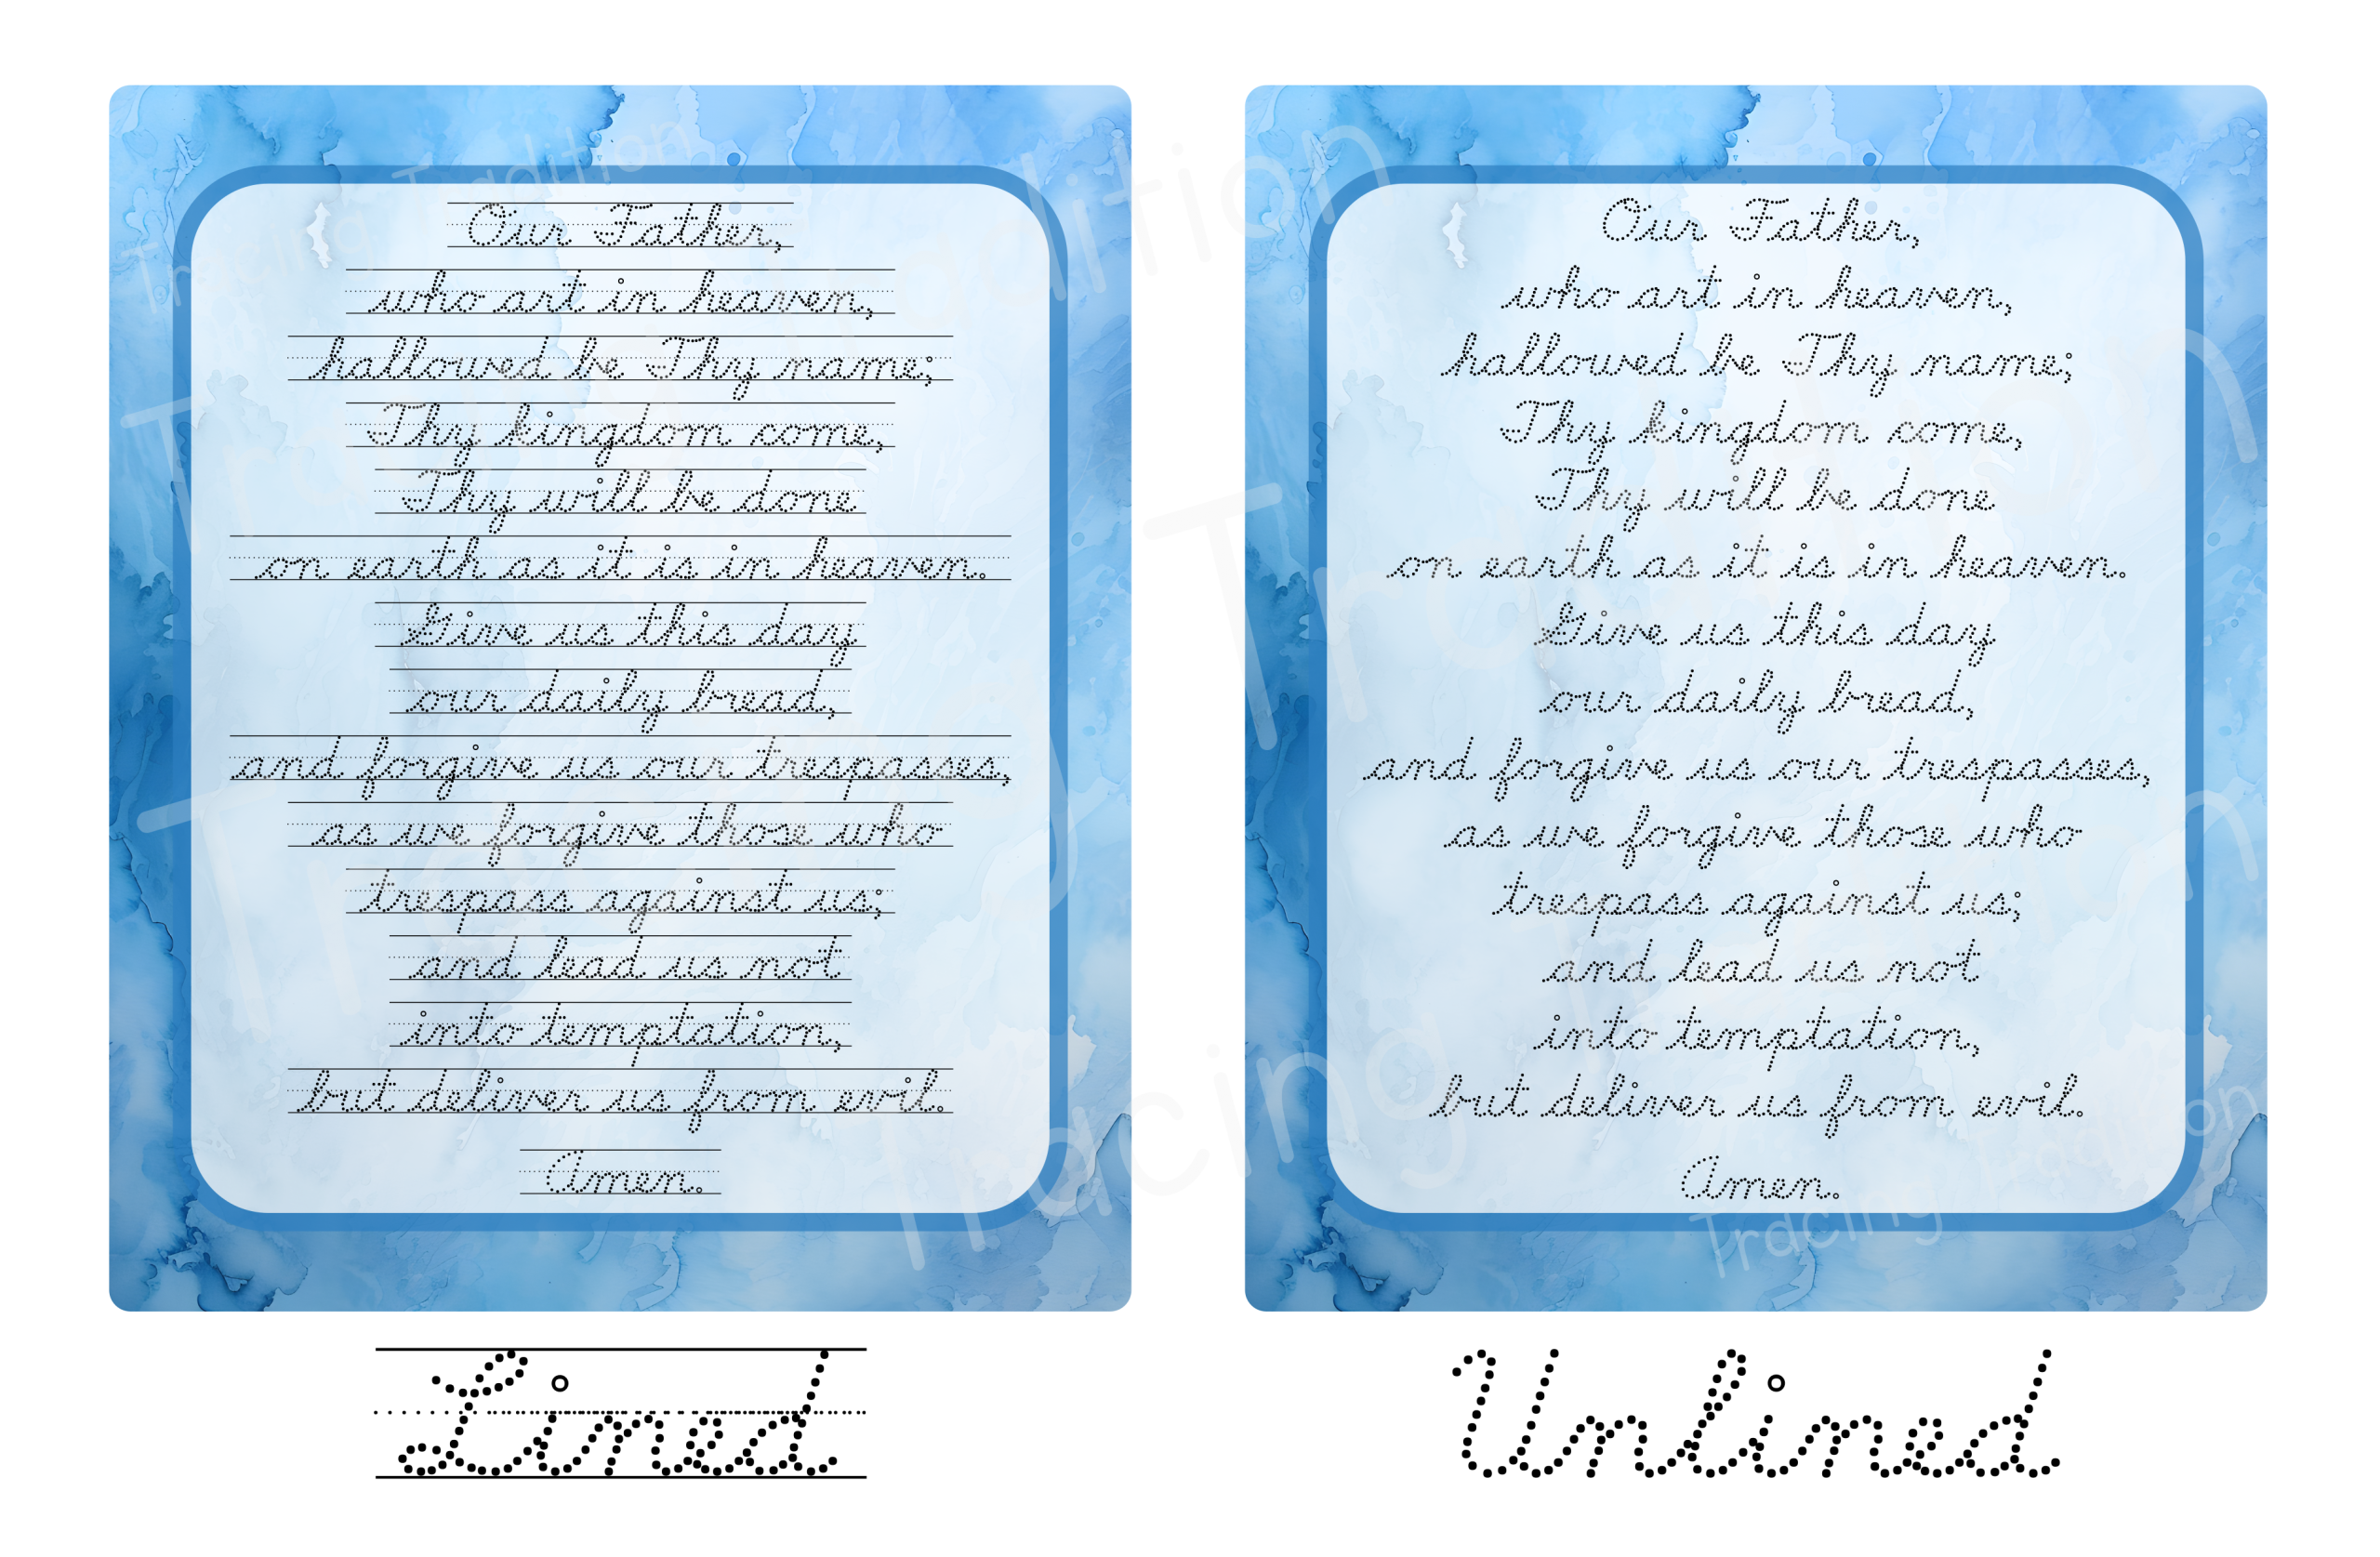 Our Father,
who art in heaven,
hallowed be Thy name;
Thy kingdom come,
Thy will be done
on earth as it is in heaven.
Give us this day
our daily bread,
and forgive us our trespasses,
as we forgive those who
trespass against us;
and lead us not
into temptation,
but deliver us from evil.
Amen.
Lined
Our Father,
who art in heaven,
hallowed be Thy name;
Thy kingdom come,
Thy will be done
on earth as it is in heaven.
Give us this day
our daily bread,
and forgive us our trespasses,
as we forgive those who
trespass against us;
and lead us not
into temptation,
but deliver us from evil.
Amen.
Unlined
Tracing Tradition
Tracing Tradition
Tracing Tradition
Tracing Tradition